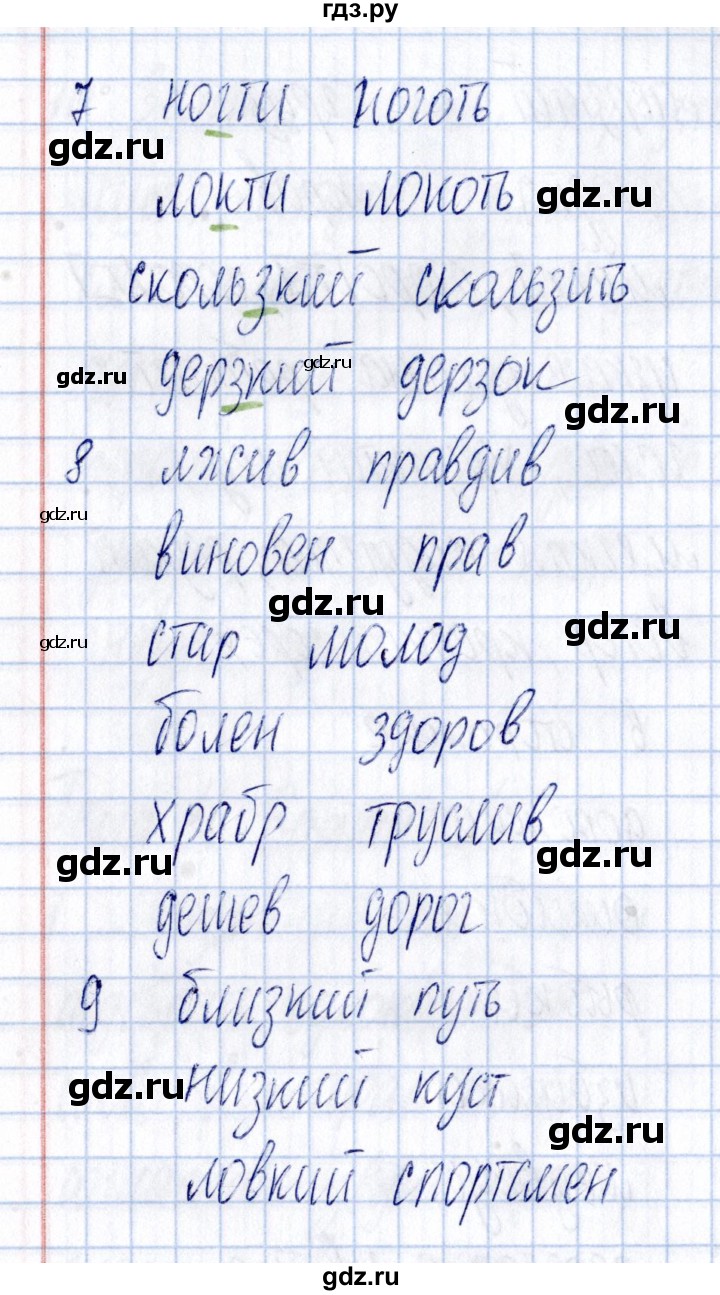 гдз.ру
7 ногти ноготь
gdz.ru
локти локоть gdz.ru
скользкий скользить
gdz.ru дерзкий gdz.ru дерзок
gdz.ru
8 лжив правдив
gdz.ru
виновен прав
gdz.ru gdz.ru
gdz.ru стар молод
болен здоров
храбр труслив
gdz.ru gdz.ru
дешев дорог
9 близкий путь
gdz.ru низкий куст
gdz.ru
ловкий спортсмен
gdz.ru